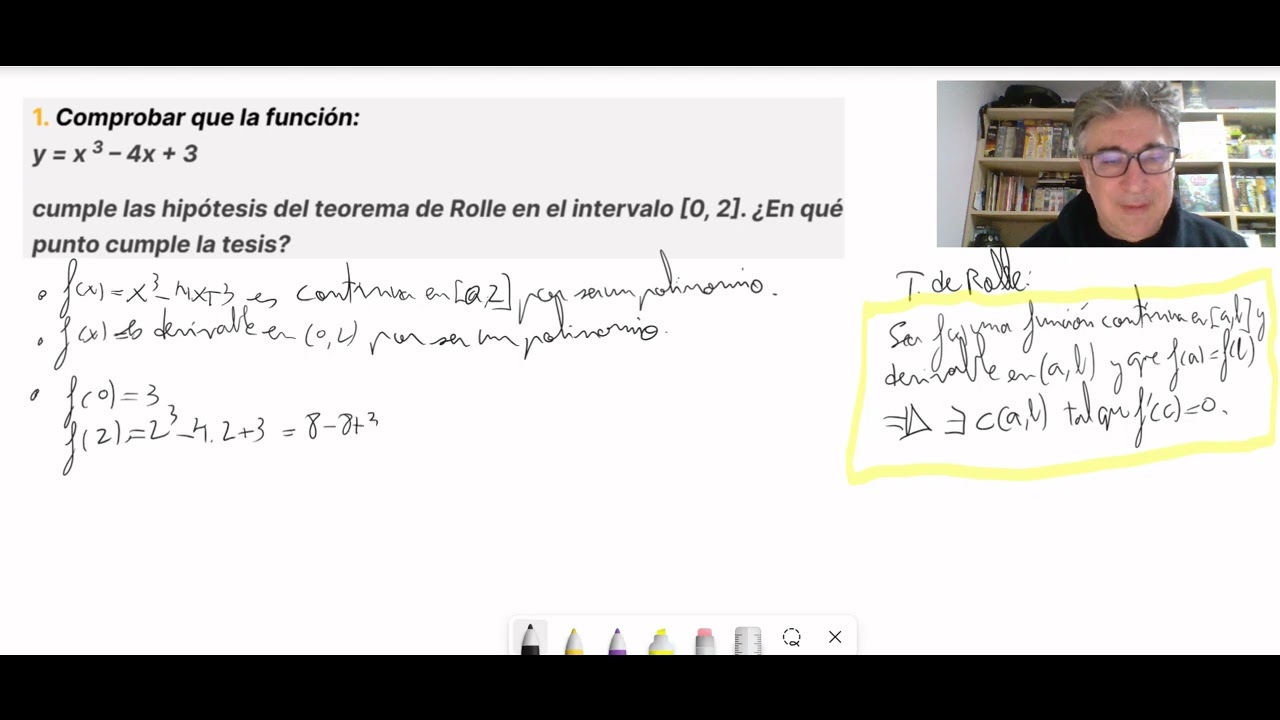 1. Comprobar que la función:
y = x³ – 4x + 3
cumple las hipótesis del teorema de Rolle en el intervalo [0, 2]. ¿En qué
punto cumple la tesis?
• f(x) = x³ - 4x + 3 es continua en [0,2] por ser un polinomio.
• f(x) es derivable en (0,2) por ser un polinomio.
• f(0) = 3
f(2) = 2³ - 4.2 + 3 = 8 - 8 + 3
T. de Rolle:
Sea f(x) una función continua en [a,b] y
derivable en (a,b) y que f(a) = f(b)
⇒ ∃ c(a,b) tal que f'(c) = 0.